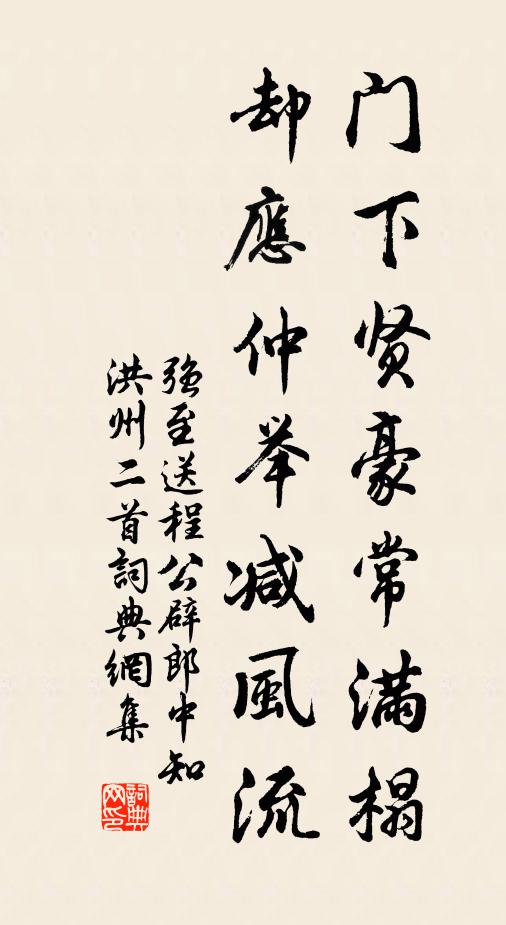 门下贤豪常满榻
却應仲举减風流
强至送程公辟郎中知
洪州二首詞典網集
詞典
网印